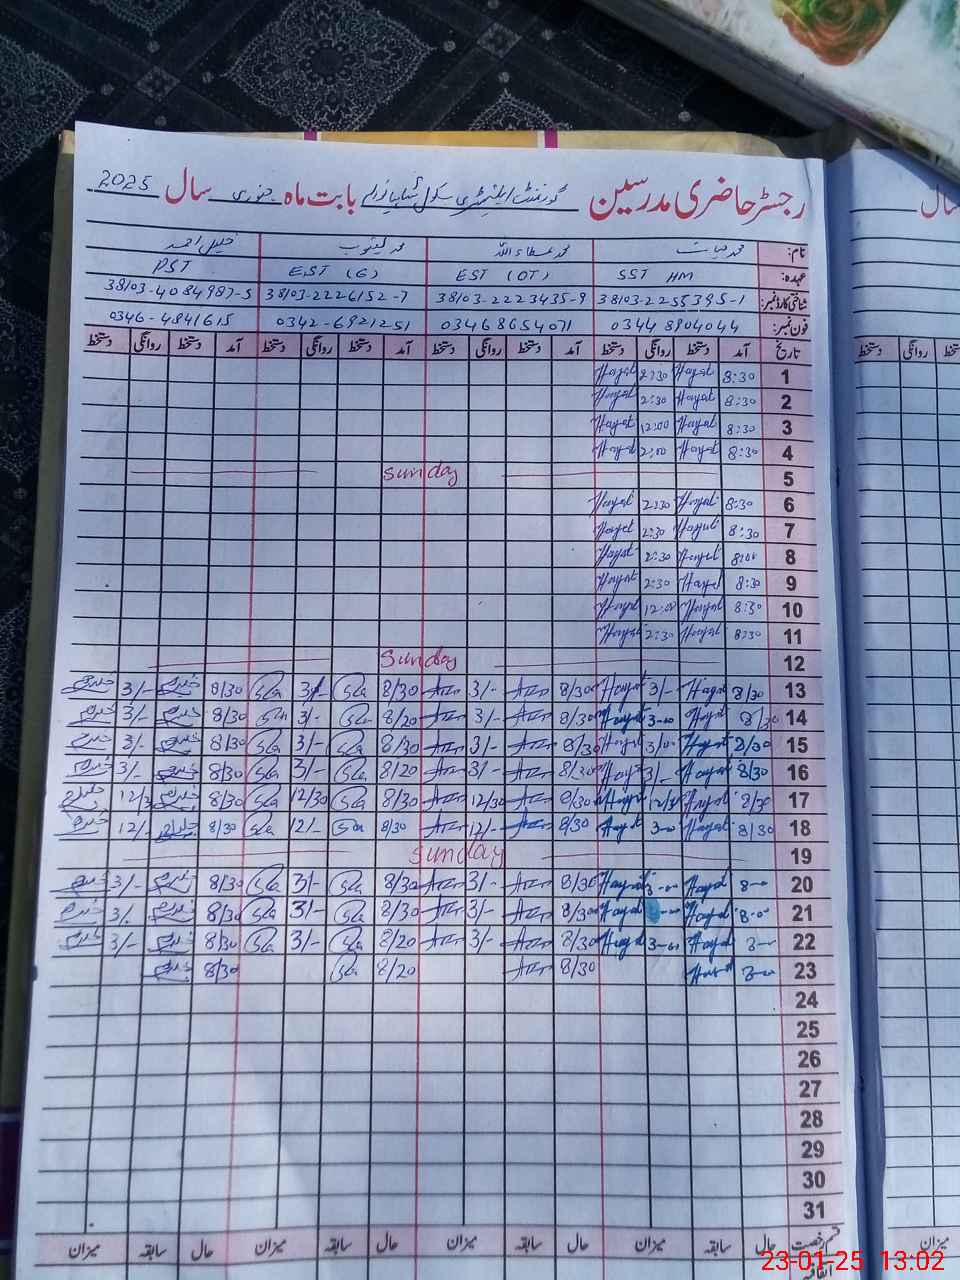 رجسٹر حاضری مدرسین گورنمنٹ ایلیمنٹری سکول بابت ماہ جنوری سال 2025
نام: محمد حیات محمد عطاء اللہ محمد یعقوب خلیل احمد
عہدہ: SST HM EST (OT) EST (G) PST
شناختی کارڈ نمبر: 38103-2255395-1 38103-2223435-9 38103-2226152-7 38103-4084987-5
فون نمبر: 0344 8904044 03468654071 0342-6921251 0346-4841615
تاریخ آمد دستخط روانگی دستخط آمد دستخط روانگی دستخط آمد دستخط روانگی دستخط آمد دستخط روانگی دستخط
1 8:30 Hayat 2:30 Hayat
2 8:30 Hayat 2:30 Hayat
3 8:30 Hayat 12:00 Hayat
4 8:30 Hayat 2:00 Hayat
5 Sunday
6 8:30 Hayat 2:30 Hayat
7 8:30 Hayat 2:30 Hayat
8 8:00 Hayat 2:30 Hayat
9 8:30 Hayat 2:30 Hayat
10 8:30 Hayat 12:00 Hayat
11 8:30 Hayat 2:30 Hayat
12 Sunday
13 8/30 Hayat 3/- Hayat 8/30 3/- 8/30 3/- 8/30 3/-
14 8/30 Hayat 3-00 Hayat 8/30 3/- 8/20 3/- 8/30 3/-
15 8/30 Hayat 3/00 Hayat 8/30 3/- 8/30 3/- 8/30 3/-
16 8/30 Hayat 3/- Hayat 8/30 3/- 8/20 3/- 8/30 3/-
17 8/30 Hayat 12/30 Hayat 8/30 12/30 8/30 12/30 8/30 12/3
18 8/30 Hayat 3-00 Hayat 8/30 12/- 8/30 12/- 8/30 12/-
19 Sunday
20 8-00 Hayat 3-00 Hayat 8/30 3/- 8/30 3/- 8/30 3/-
21 8-00 Hayat Hayat 8/30 3/- 8/30 3/- 8/30 3/-
22 8-00 Hayat 3-00 Hayat 8/30 3/- 8/20 3/- 8/30 3/-
23 8-00 Hayat 8/30 8/20 8/30
24
25
26
27
28
29
30
31
قسم رخصت حال سابقہ میزان حال سابقہ میزان حال سابقہ میزان حال سابقہ میزان
اتفاقیہ
سال
دستخط روانگی دستخط
میزان
23-01-25 13:02